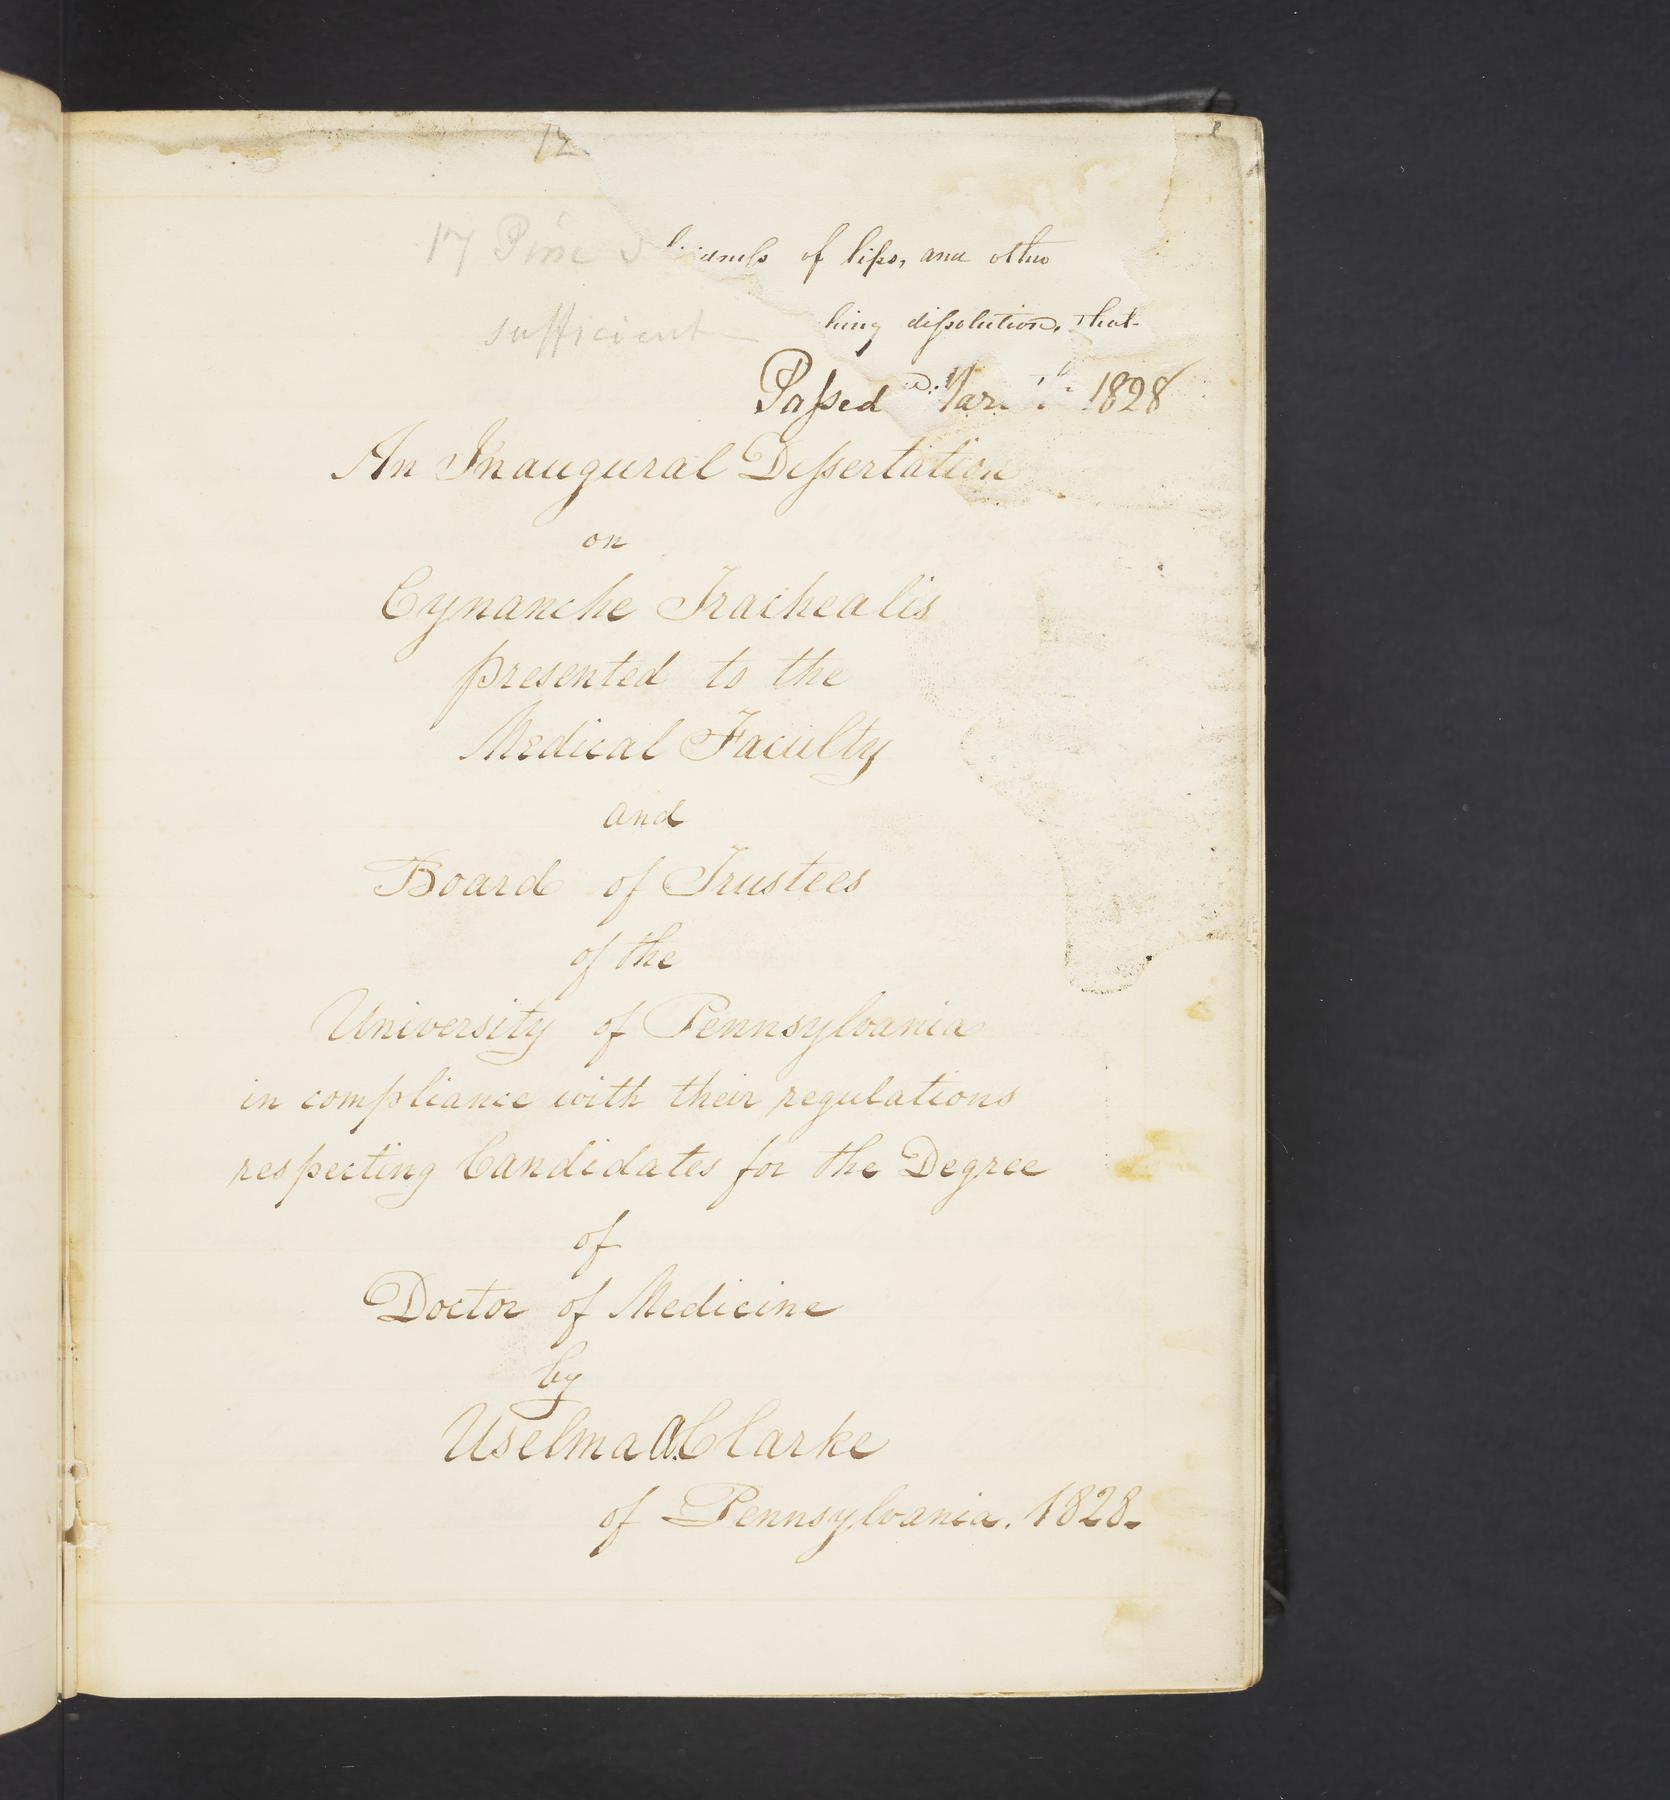 12
17 Pine
of lips, and other
dissolution, that
Passed Mar 1828
An Inaugural Dissertation
sufficient
on
Cynanche Trachealis
presented to the
Medical Faculty
and
Board of Trustees
of the
University of Pennsylvania
in compliance with their regulations
respecting Candidates for the Degree
of
Doctor of Medicine
by
Uselma A. Clarke
of Pennsylvania. 1828.